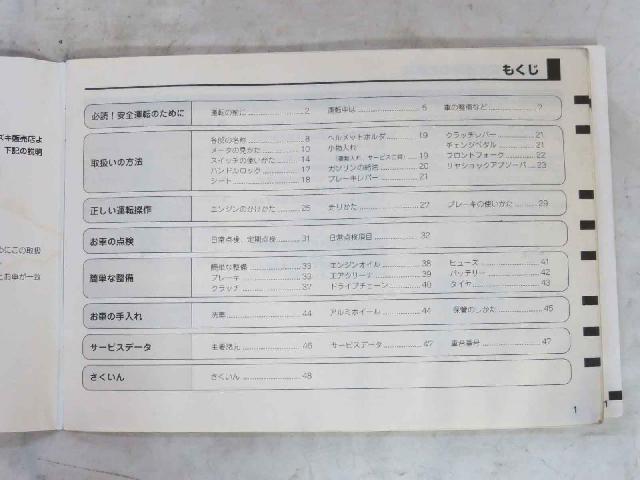 もくじ
必読！安全運転のために
運転の前に 2 運転中は 5 車の整備など 7
取扱いの方法
各部の名称 8 ヘルメットホルダ 19 クラッチレバー 21
メータの見かた 10 小物入れ チェンジペダル 21
スイッチの使いかた 14 19 フロントフォーク 22
ハンドルロック 17 ガソリンの給油 20 リヤショックアブソーバ 23
シート 18 ブレーキレバー 21
正しい運転操作
エンジンのかけかた 25 走りかた 27 ブレーキの使いかた 29
お車の点検
日常点検、定期点検 31 日常点検項目 32
簡単な整備
簡単な整備 33 エンジンオイル 38 ヒューズ 41
ブレーキ 33 エアクリーナ 39 バッテリー 42
クラッチ 37 ドライブチェーン 40 タイヤ 43
お車の手入れ
洗車 44 アルミホイール 44 保管のしかた 45
サービスデータ
主要諸元 46 サービスデータ 47 車台番号 47
さくいん
さくいん 48
1
ズキ販売店よ
下記の説明
めにこの取扱
とお車が一致
1